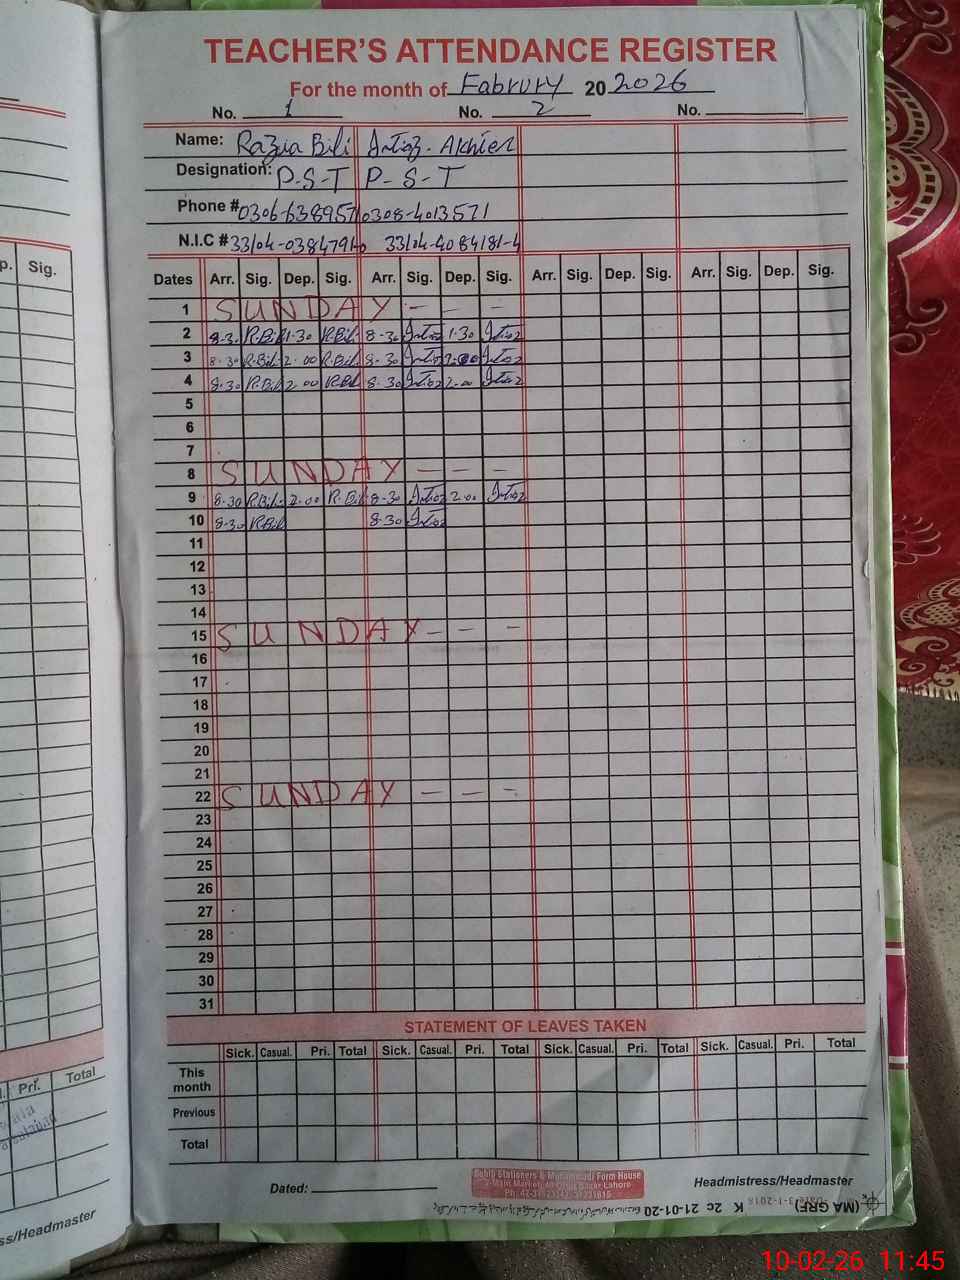 TEACHER'S ATTENDANCE REGISTER
For the month of Fabrury 20 2026
No. 1 No. 2 No.
Name: Razia Bibi Imtiaz. Akhter
Designation: P-S-T P-S-T
Phone # 0306-638957 0308-4013571
N.I.C # 33104-0384791-0 33104-4084181-4
Dates Arr. Sig. Dep. Sig. Arr. Sig. Dep. Sig. Arr. Sig. Dep. Sig. Arr. Sig. Dep. Sig.
1 SUNDAY - - -
2 8-30 R.Bibi 1-30 R.Bibi 8-30 Imtiaz 1-30 Imtiaz
3 8-30 R.Bibi 2-00 R.Bibi 8-30 Imtiaz 2-00 Imtiaz
4 8-30 R.Bibi 2-00 R.Bibi 8-30 Imtiaz 2-00 Imtiaz
5
6
7
8 SUNDAY - - -
9 8-30 R.Bibi 2-00 R.Bibi 8-30 Imtiaz 2-00 Imtiaz
10 8-30 R.Bibi 8-30 Imtiaz
11
12
13
14
15 SUNDAY - - -
16
17
18
19
20
21
22 SUNDAY - - -
23
24
25
26
27
28
29
30
31
STATEMENT OF LEAVES TAKEN
Sick. Casual. Pri. Total Sick. Casual. Pri. Total Sick. Casual. Pri. Total Sick. Casual. Pri. Total
This month
Previous
Total
Dated:
Headmistress/Headmaster
Stationers & Muhammadi Form House
2-Main Market, Urdu Bazar Lahore
(MA GRF) K 2c 21-01-20
p. Sig.
Pri. Total
ss/Headmaster
10-02-26 11:45